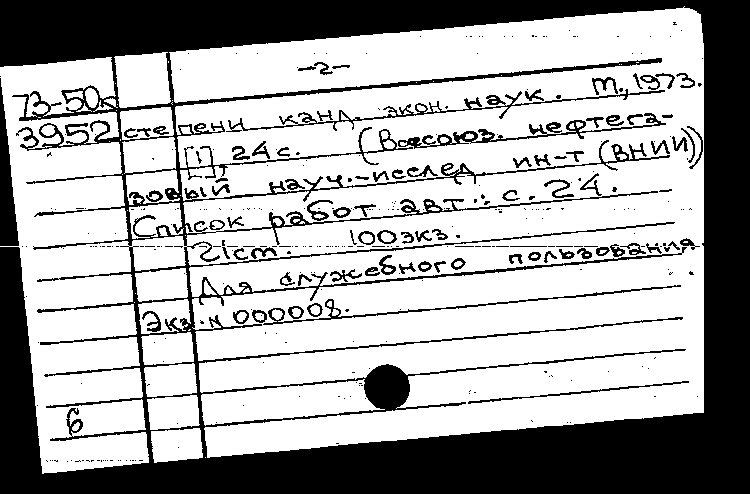 -2-
73-50к
3952 степени канд. экон. наук. М., 1973.
[1], 24 с. (Всесоюз. нефтега-
зовый науч.-исслед. ин-т (ВНИИ))
Список работ авт.: с. 24.
21 см. 100 экз.
Для служебного пользования.
Экз. N 000008.
6